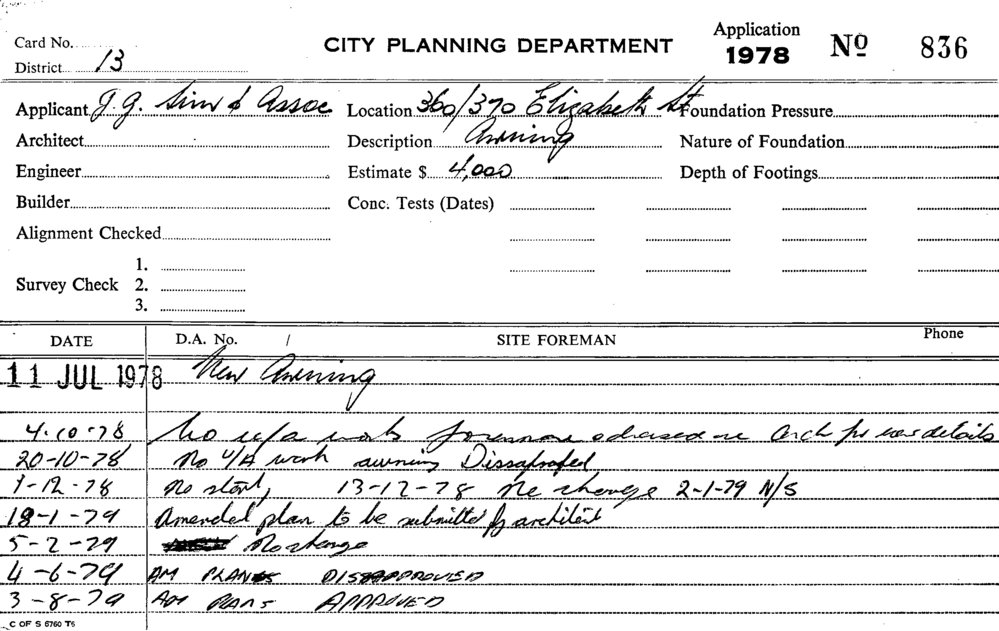 Card No. CITY PLANNING DEPARTMENT Application 1978 Nº 836
District 13
Applicant J. G. Sim & Assoc Location 360/370 Elizabeth St Foundation Pressure
Architect Description Awning Nature of Foundation
Engineer Estimate $ 4,000 Depth of Footings
Builder Conc. Tests (Dates)
Alignment Checked
Survey Check 1.
2.
3.
DATE D.A. No. / SITE FOREMAN Phone
11 JUL 1978 New Awning
4-10-78 No u/a work foreman advised re details
20-10-78 No U/A work awning Dissaproped
1-12-78 No start, 13-12-78 No change 2-1-79 N/S
18-1-79 Amended plan to be submitted by architect
5-2-79 No change
4-6-79 AM PLANS DISAPPROVED
3-8-79 AM PLANS APPROVED
C OF S 5760 T5